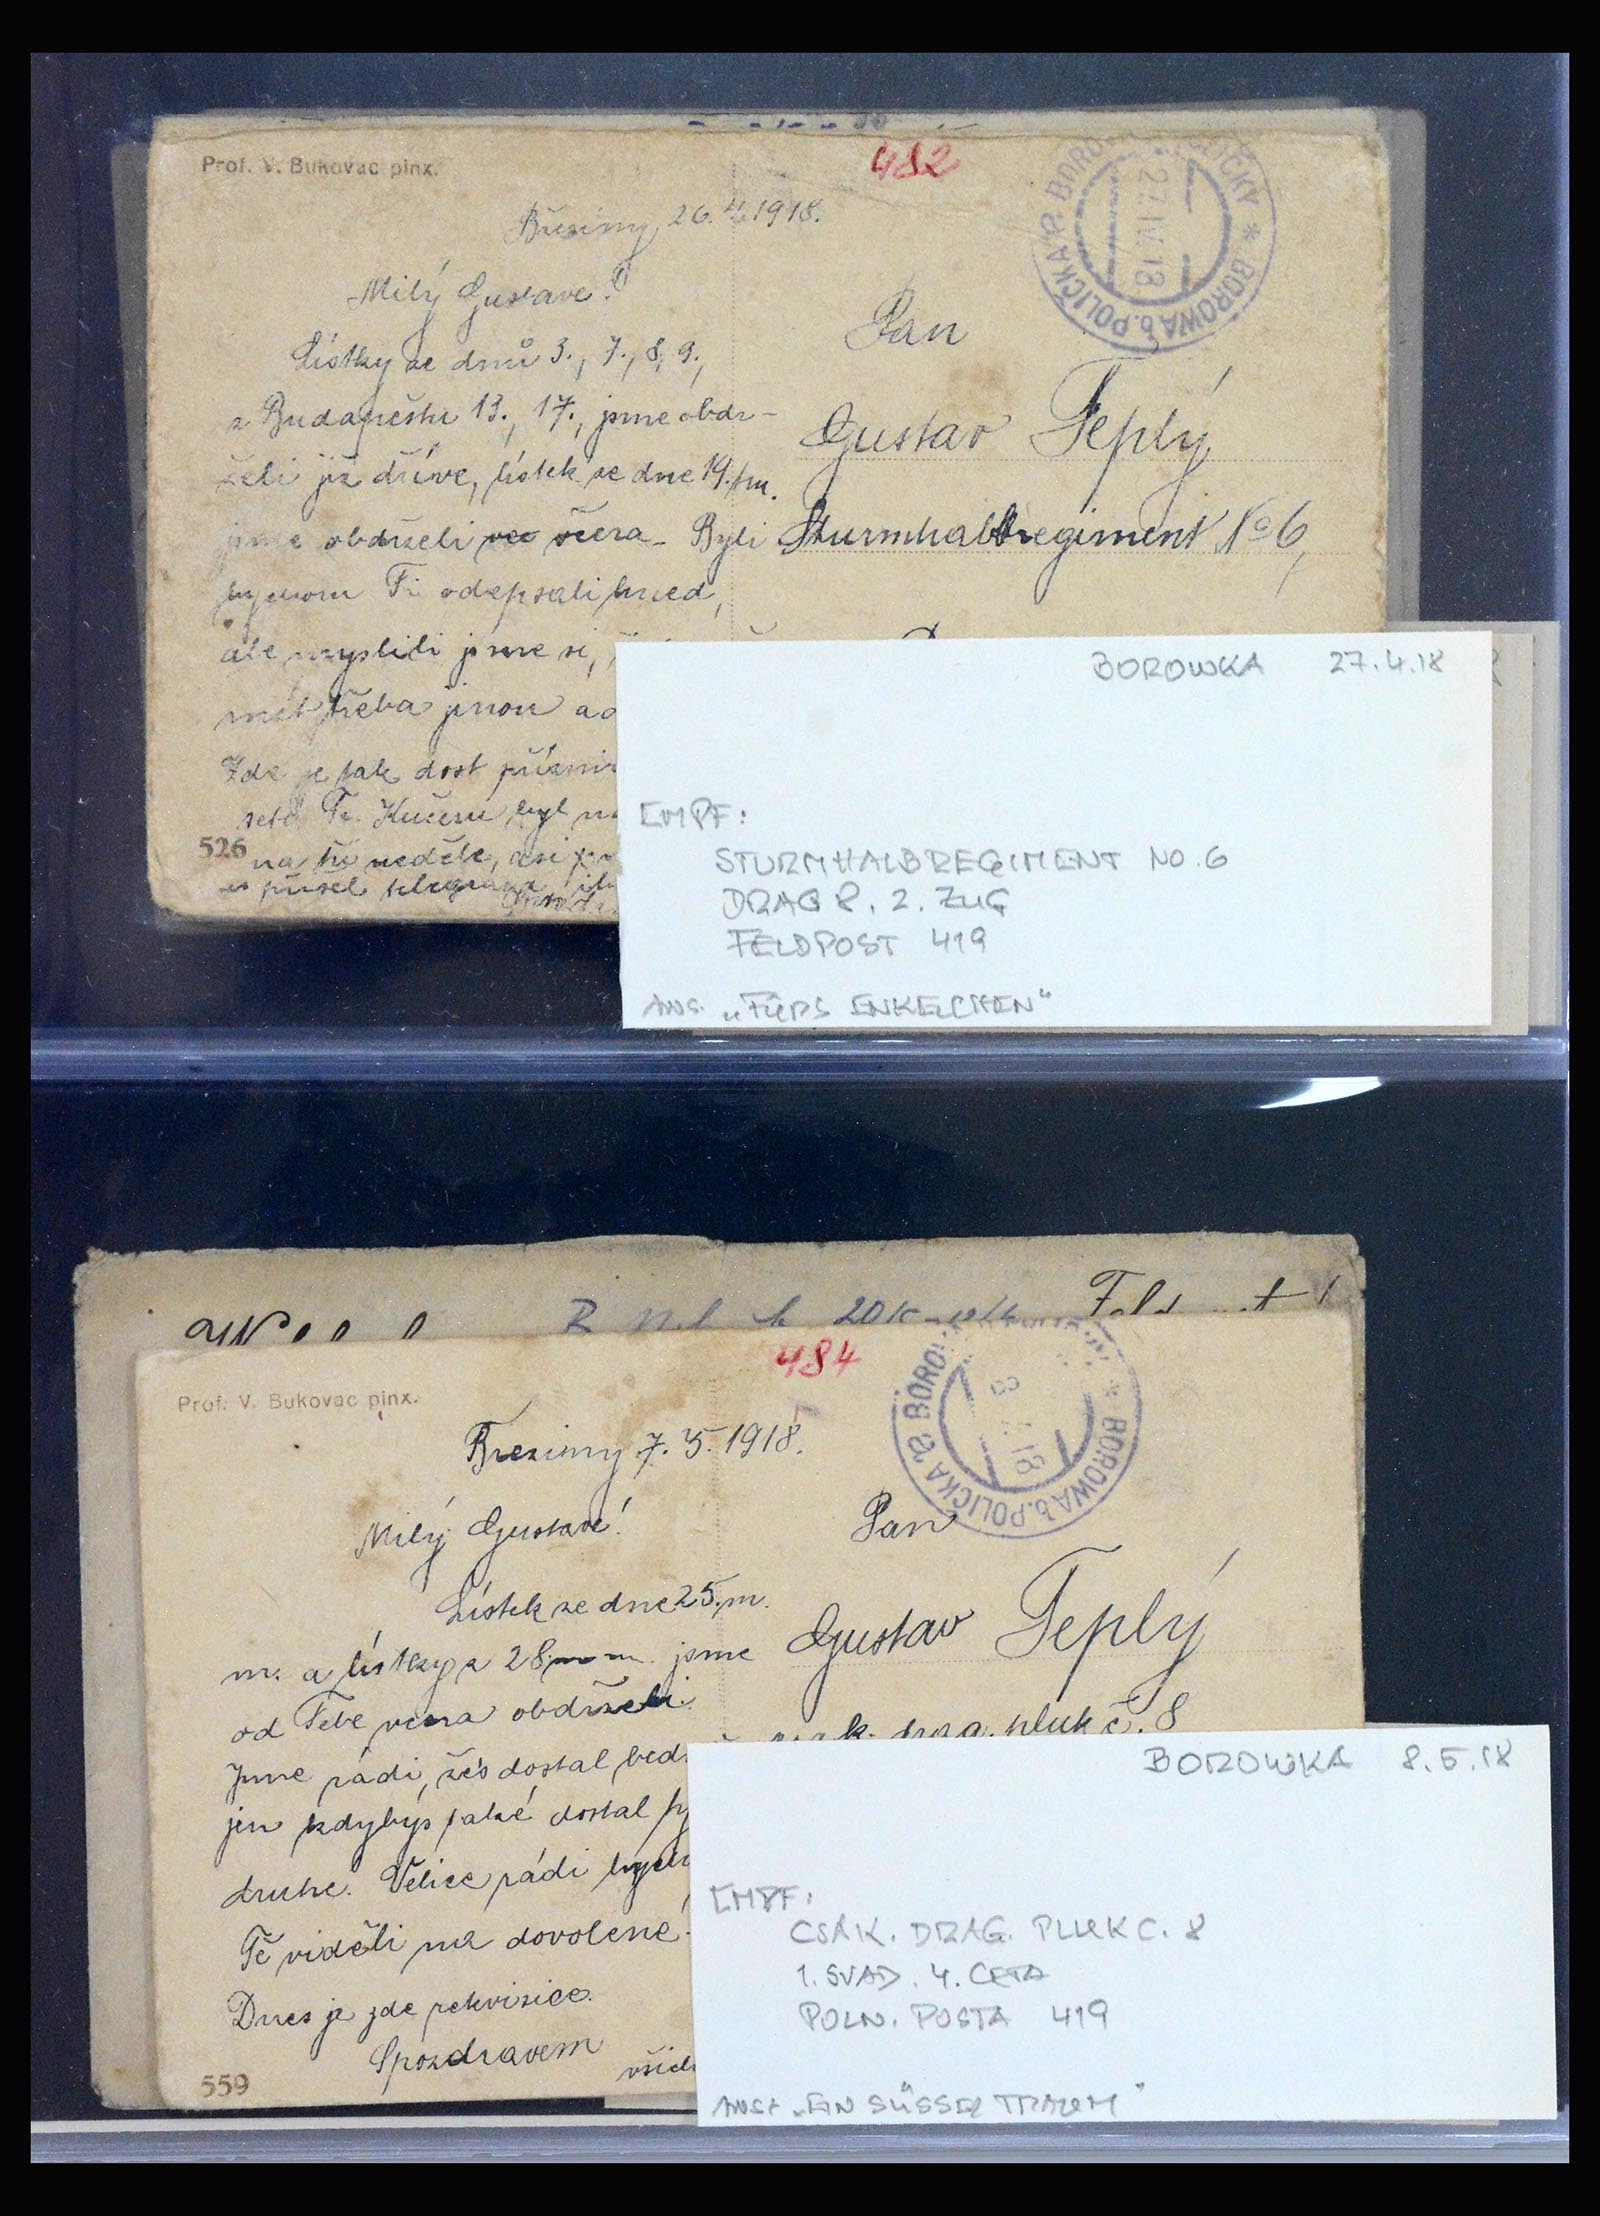 482
Prof. V. Bukovac pinx.
BOROWA b. POLIČKA * BOROVÁ
27.IV.18
Březiny, 26.4.1918.
Milý Gustave!
Lístky ze dnů 3., 7., 8., 9.,
z Budapeštu 13., 17., jsme obdr-
želi již dříve, lístek ze dne 19. t.m.
jsme obdrželi včera. Byli
bychom Ti odepsali hned,
ale myslili jsme si,
máš třeba jinou
Zde je tak dost
Fr. Kučera byl
na tři neděle, asi
přišel telegram
526
Pan
Gustav Teplý
Sturmhalbregiment No 6,
BOROWKA 27.4.18
EMPF:
STURMHALBREGIMENT NO. 6
DRAG 8. 2. ZUG
FELDPOST 419
ANS. „FÜRS ENKELCHEN"
484
Prof. V. Bukovac pinx.
BOROWA b. POLIČKA * BORO
8. 18
Březiny 7.5.1918.
Milý Gustave!
Lístek ze dne 25. m.
m. a lístky z 28. m. m. jsme
od Tebe včera obdrželi.
Jsme rádi, žes dostal
jen kdybys také dostal
druhé. Velice rádi
Tě viděli na dovolené.
Dnes je zde rekvisice.
S pozdravem
559
Pan
Gustav Teplý
drag. pluk č. 8
BOROWKA 8.5.18
EMPF:
CSAK. DRAG. PLUK C. 8
1. SVAD. 4. CETA
POLN. POSTA 419
ANS. „EIN SÜSSER TRAUM"